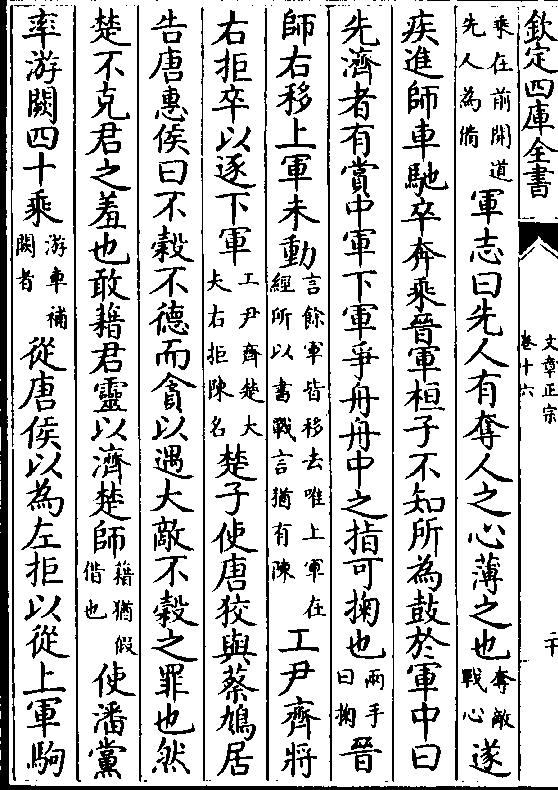 欽定四庫全書
文章正宗
卷十六
二十
乘在前開道先人為備軍志曰先人有奪人之心薄之也奪敵戰心遂
疾進師車馳卒奔乘晉軍桓子不知所為鼓於軍中曰
先濟者有賞中軍下軍爭舟舟中之指可掬也兩手曰掬晉
師右移上軍未動言餘軍皆移去唯上軍在經所以書戰言猶有陳工尹齊將
右拒卒以逐下軍工尹齊楚大夫右拒陳名楚子使唐狡與蔡鳩居
告唐惠侯曰不糓不德而貪以遇大敵不糓之罪也然
楚不克君之羞也敢藉君靈以濟楚師藉猶假借也使潘黨
率游闕四十乘游車補闕者從唐侯以為左拒以從上軍駒